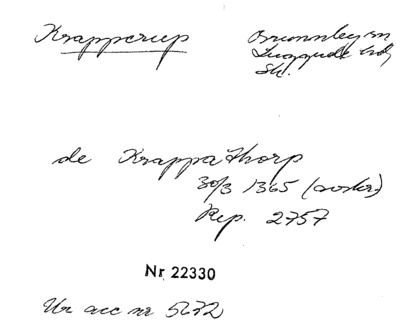 Krapperup
Brunnby sn
Luggude hd
Sk.
de Krappathorp
30/3 1365 (avskr.)
Rep. 2757
Nr 22330
Ur acc nr 5672